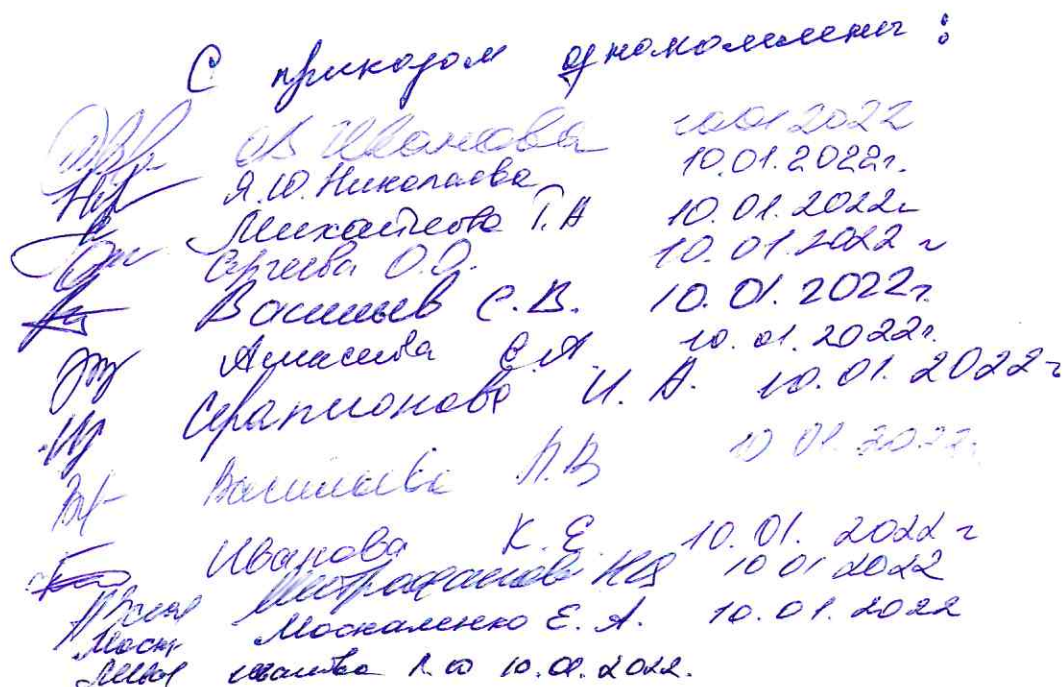 С приказом ознакомлены:
О.В. Иванова 10.01.2022
Я.Ю. Николаева 10.01.2022г.
Михайлова Т.А 10.01.2022г
Сергеева О.О. 10.01.2022 г
Васильев С.В. 10.01.2022г.
Е.А. 10.01.2022г.
Серапионова И.А. 10.01.2022г
Васильева Л.В 10 01.2022г
Иванова К.Е. 10.01.2022 г
Митрофанова 10 01 2022
Москаленко Е.А. 10.01.2022
10.01.2022.